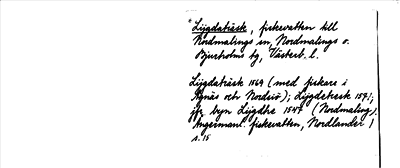 Lijgdaträsk, fiskevatten till
Nordmalings sn, Nordmalings o.
Bjurholms tg, Västerb. l.
Lijgdaträsk 1569 (med fiskare i
Agnäs och Nordsiö); Lijgdetresk 1571;
jfr byn Lijgdhe 1547 (Nordmaling).
Ångermanl. fiskevatten, Nordlander 1
s. 15